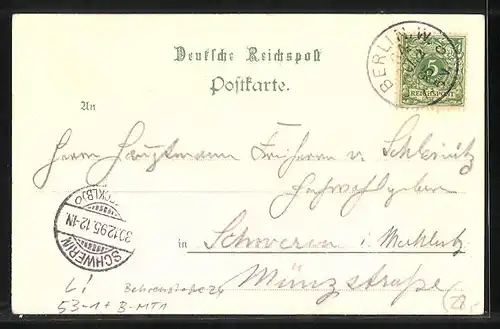 BERLIN. W.
5
REICHSPOST
Deutsche Reichspost
Postkarte.
An
Herrn Hauptmann Freiherrn v. Schleinitz
Hochwohlgeboren
in Schwerin i. Mecklbg
Münzstraße
SCHWERIN
(MECKLB)
30.12.95.12-1N.
Li Behrenstraße
53-1+B-MT1
28,-